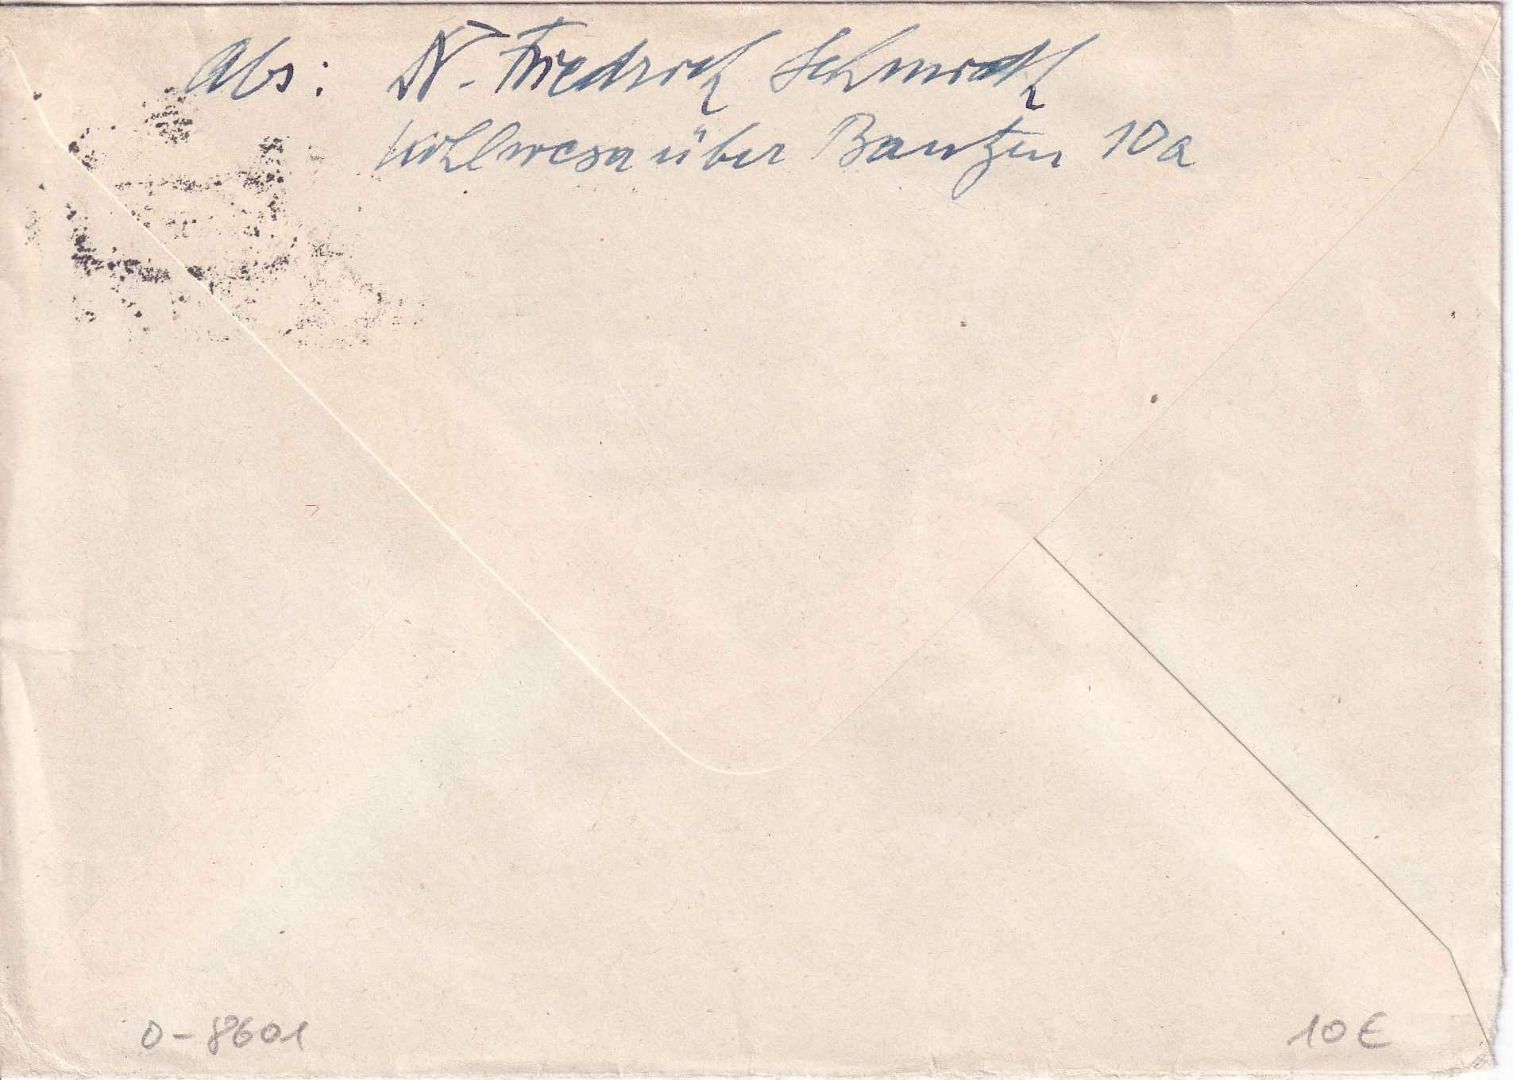 Abs: Dr. Friedrich Schmidt
Kohlwesa über Bautzen 10a
O-8601
10€